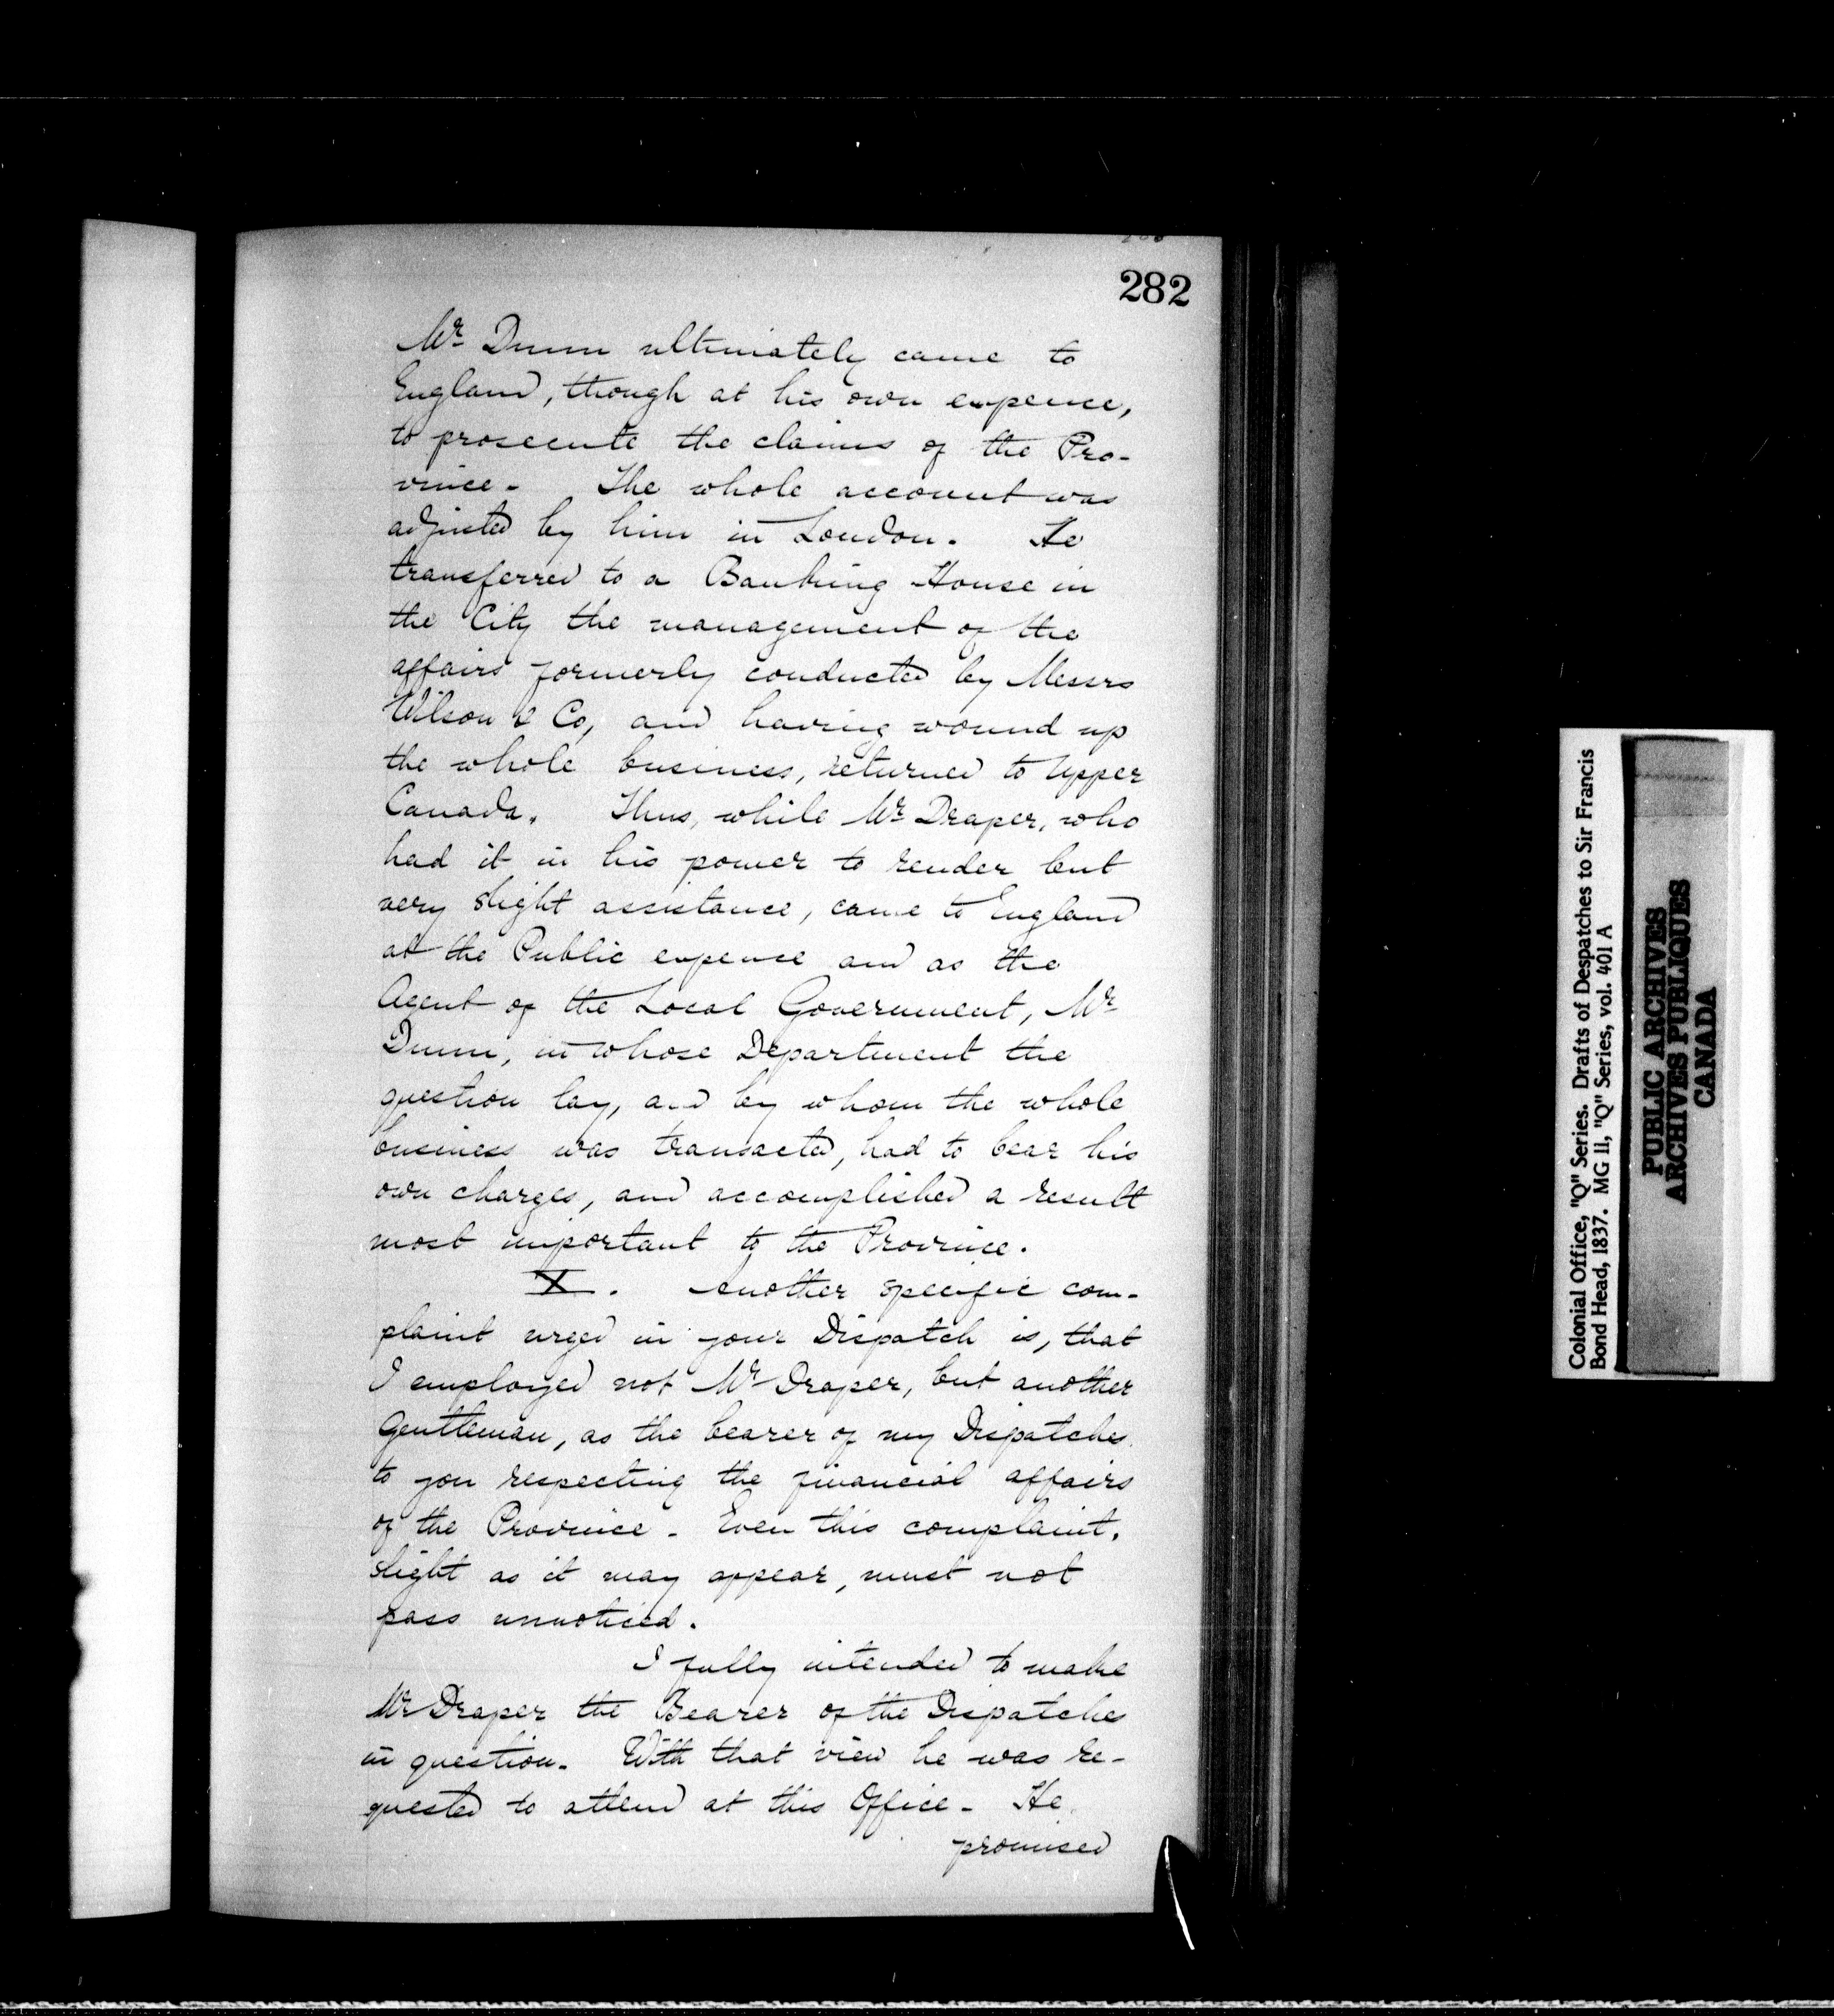 282
Mr Dunn ultimately came to
England, though at his own expence,
to prosecute the claims of the Pro-
vince. The whole account was
adjusted by him in London. He
transferred to a Banking House in
the City the management of the
affairs formerly conducted by Messrs
Wilson & Co, and having wound up
the whole business, returned to Upper
Canada. Thus, while Mr Draper, who
had it in his power to render but
very slight assistance, came to England
at the Public expence and as the
Agent of the Local Government, Mr
Dunn, in whose Department the
question lay, and by whom the whole
business was transacted, had to bear his
own charges, and accomplished a result
most important to the Province.
X. Another specific com-
plaint urged in your Dispatch is, that
I employed not Mr Draper, but another
Gentleman, as the bearer of my Dispatches
to you respecting the financial affairs
of the Province. Even this complaint,
slight as it may appear, must not
pass unnoticed.
I fully intended to make
Mr Draper the Bearer of the Dispatches
in question. With that view he was re-
quested to attend at this Office. He
promised
Colonial Office, "Q" Series. Drafts of Despatches to Sir Francis
Bond Head, 1837. MG 11, "Q" Series, vol. 401 A
PUBLIC ARCHIVES
ARCHIVES PUBLIQUES
CANADA